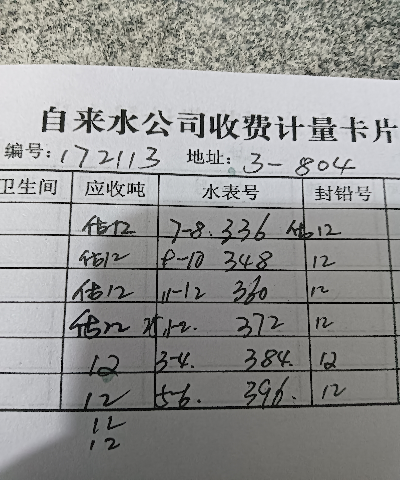 自来水公司收费计量卡片
编号:172113 地址:3-804
卫生间 应收吨 水表号 封铅号
估12 7-8. 336 估12
估12 9-10 348 12
估12 11-12 360 12
估12 1-2. 372 12
12 3-4. 384. 12
12 5-6. 396. 12
12
12